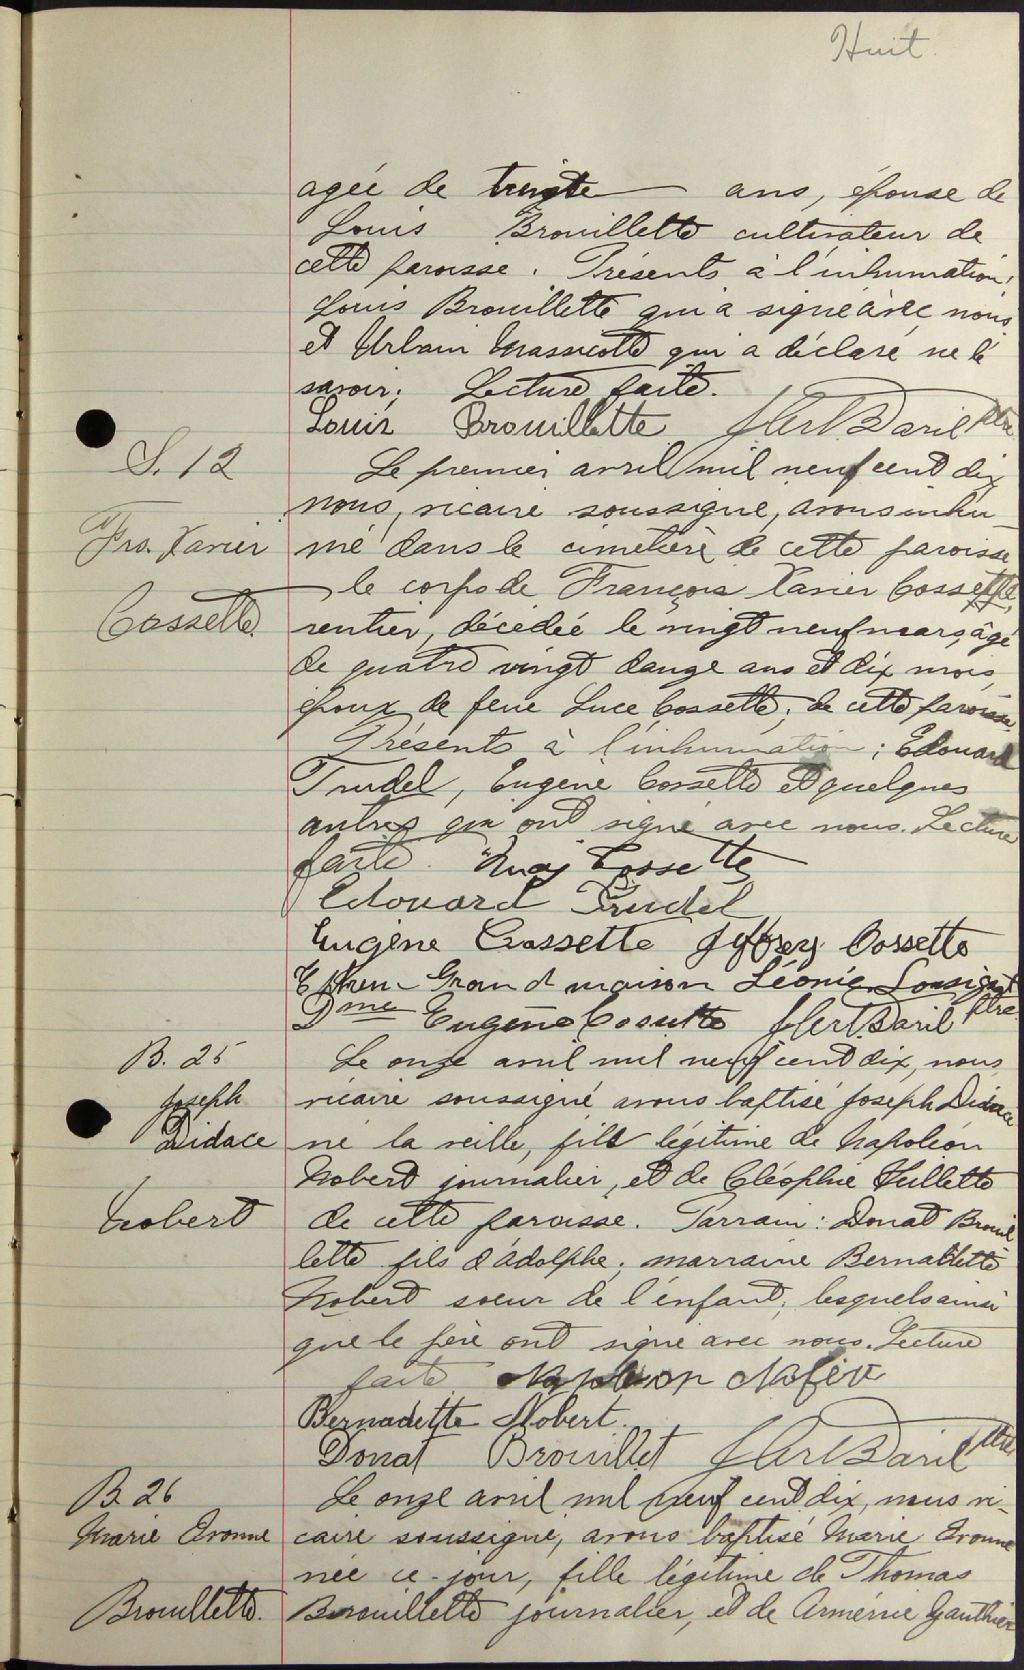 Huit.
agée de trente ans, épouse de
Louis Brouillette cultivateur de
cette paroisse. Présents à l'inhumation:
Louis Brouillette qui a signé avec nous
et Urbain Massicotte qui a déclaré ne le
savoir; Lecture faite.
Louis Brouillette J Art Baril ptre
S. 12
Frs. Xavier
Cossette.
Le premier avril mil neuf cent dix
nous, vicaire soussigné, avons inhu-
mé dans le cimetière de cette paroisse
le corps de François Xavier Cossette,
rentier, décédée le vingt neuf mars, âgé
de quatre vingt douze ans et dix mois
époux de feue Luce Cossette; de cette paroisse.
Présents à l'inhumation; Edouard
Trudel, Eugène Cossette et quelques
autres qui ont signé avec nous. Lecture
faite. Cossette
Edouard Trudel
Eugène Cossette Jeffrey Cossette
Grandmaison Léonie Lonsignant
Dme Eugène Cossette J Art Baril ptre
B. 25
Joseph
Didace
Nobert
Le onze avril mil neuf cent dix, nous
vicaire soussigné avons baptisé Joseph Didace
né la veille, fils légitime de Napoléon
Nobert journalier, et de Cléophie Veillette
de cette paroisse. Parrain: Donat Brouil
lette fils d'Adolphe; marraine Bernadette
Nobert soeur de l'enfant; lesquels ainsi
que le père ont signé avec nous. Lecture
faite Napoleon
Bernadette Nobert.
Donat Brouillet J Art Baril ptre
B. 26
Marie Evonne
Brouillette.
Le onze avril mil neuf cent dix, nous vi-
caire soussigné, avons baptisé Marie Evonne
née ce jour, fille légitime de Thomas
Brouillette journalier, et de Arménie Gauthier